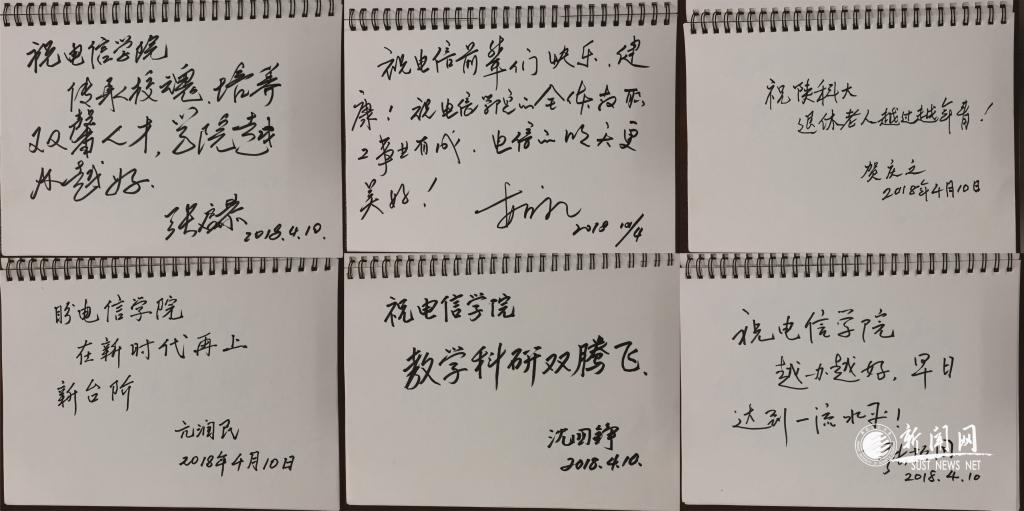 祝电信学院
传承校魂,培养
双馨人才,学院越
办越好.
2018.4.10.
祝电信前辈们快乐、健
康!祝电信学院的全体教职
工事业有成、电信的明天更
美好!
2018 10/4
祝陕科大
退休老人越过越年青!
贺庆文
2018年4月10日
盼电信学院
在新时代再上
新台阶
亢润民
2018年4月10日
祝电信学院
教学科研双腾飞.
沈回铮
2018.4.10.
祝电信学院
越办越好,早日
达到一流水平!
2018.4.10
新闻网
SUST NEWS NET